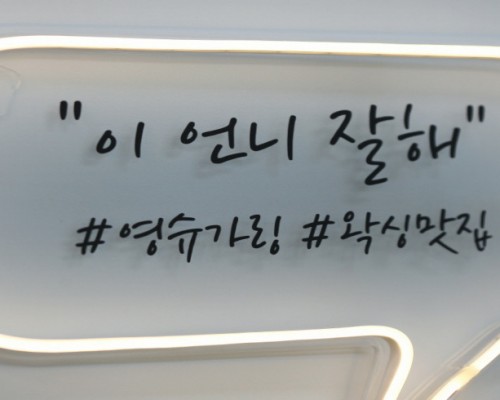 "이 언니 잘해"
#영슈가링 #왁싱맛집